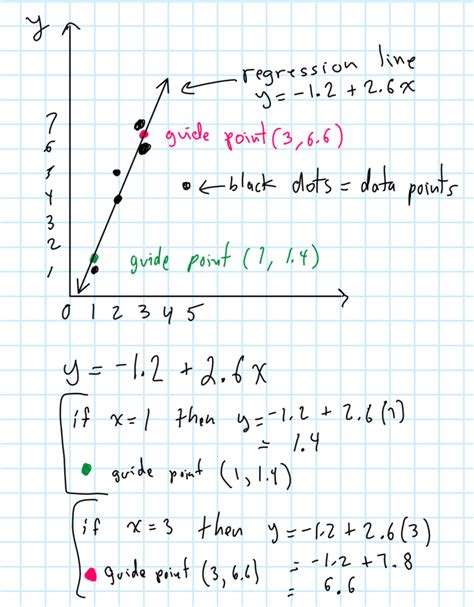 y
regression line
y = -1.2 + 2.6x
7
guide point (3, 6.6)
6
5
black dots = data points
4
3
2
guide point (1, 1.4)
1
0 1 2 3 4 5
y = -1.2 + 2.6x
if x=1 then y = -1.2 + 2.6(1)
= 1.4
guide point (1, 1.4)
if x=3 then y = -1.2 + 2.6(3)
= -1.2 + 7.8
guide point (3, 6.6)
= 6.6